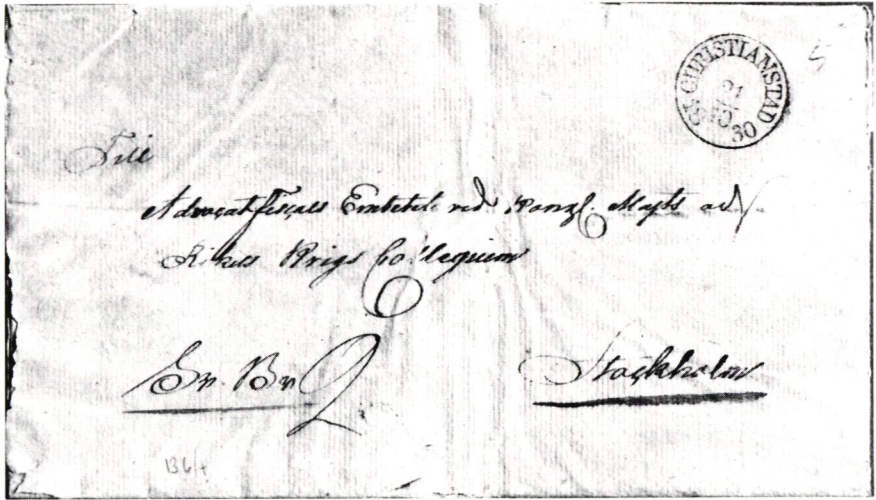 CHRISTIANSTAD
21
10
30
Till
Advocatfiscals Embetet vid Kongl. Majts och
Rikets Krigs Collegium
Stockholm